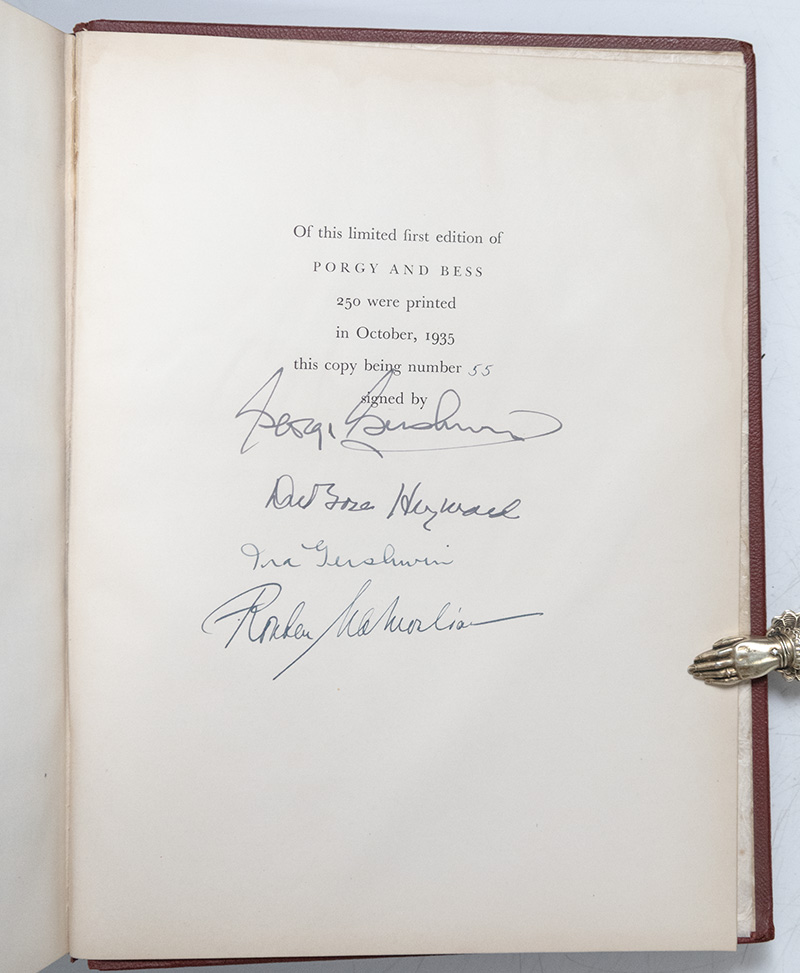 Of this limited first edition of
PORGY AND BESS
250 were printed
in October, 1935
this copy being number 55
signed by
George Gershwin
DuBose Heyward
Ira Gershwin
Rouben Mamoulian